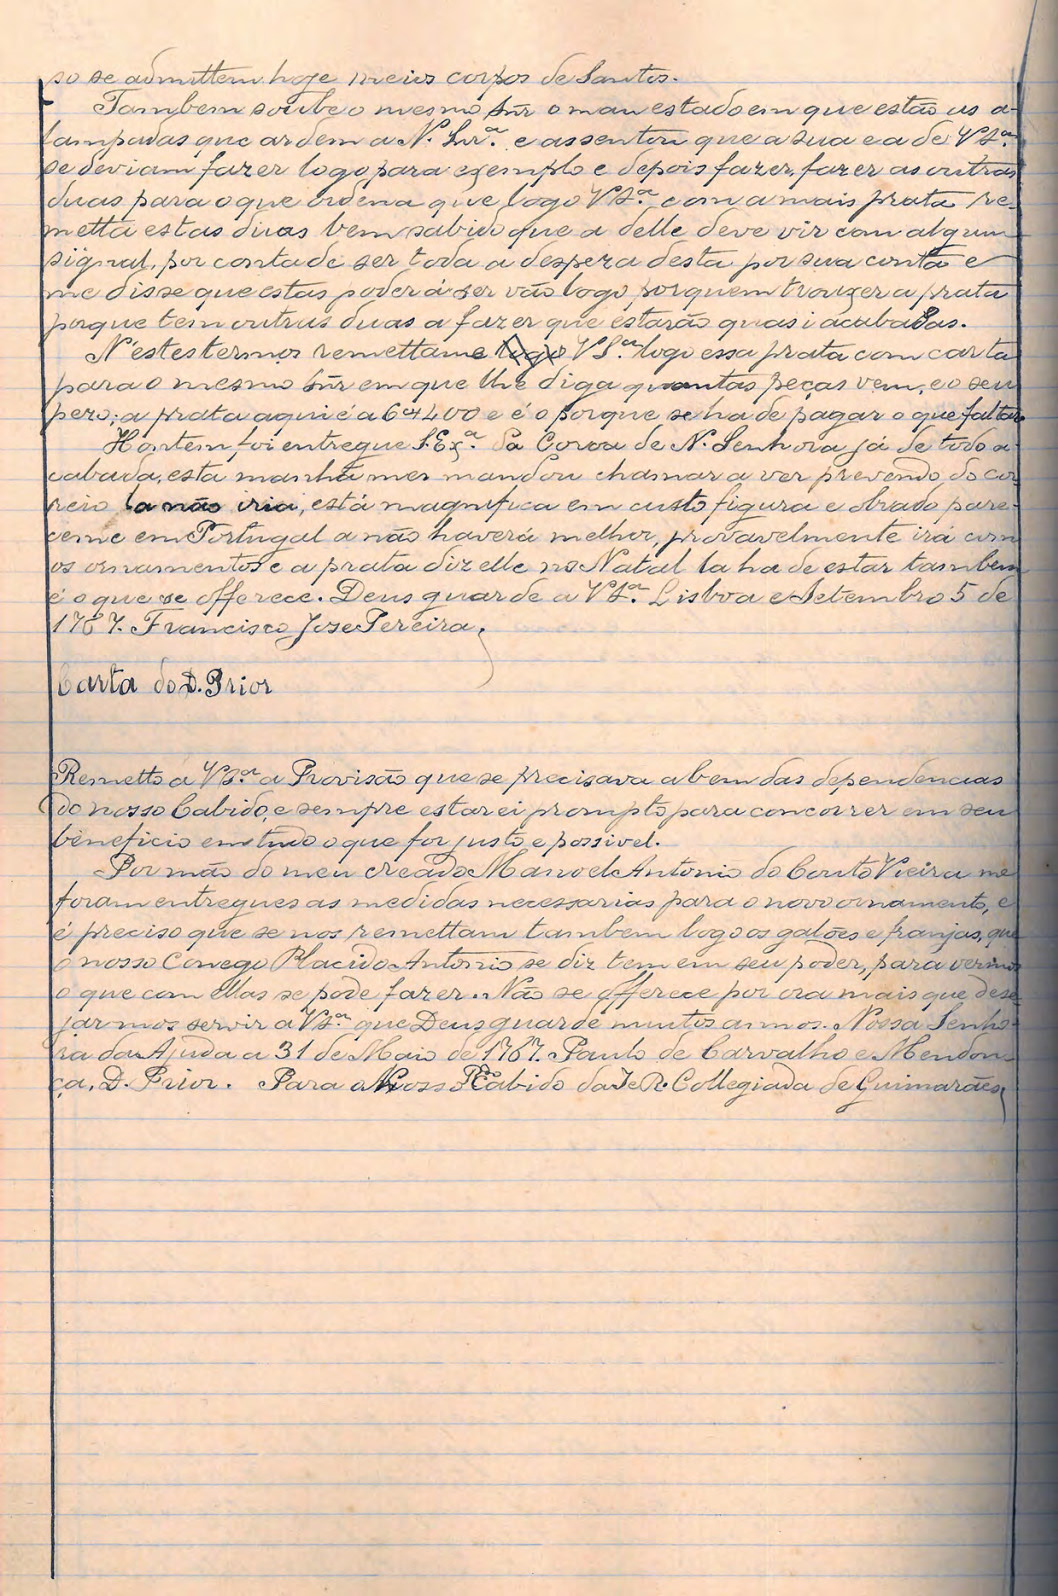 so se admittem hoje meios corpos de Santos.
Tambem soube o mesmo Snr o mau estado em que estão as a-
lampadas que ardem a N. Snr.ª e assentou que a sua e a de VS.ª
se deviam fazer logo para exemplo e depois fazer, fazer as outras
duas para o que ordena que logo VS.ª com a mais prata re-
metta estas duas bem sabido que a delle deve vir com algum
signal, por conta de ser toda a despeza desta por sua conta e
me disse que estas poderá ser vão logo por quem trouxer a prata
porque tem outras duas a fazer que estarão quasi acabadas.
N'estes termos remettame logo VS.ª logo essa prata com carta
para o mesmo Snr em que lhe diga quantas peças vem, e o seu
pezo; a prata aqui é a 6400 e é o porque se ha de pagar o que faltar
Hontem foi entregue S. Ex.ª da Coroa de N. Senhora já de todo a-
cabada, esta manhã mes mandou chamar a ver prevendo do cor
reio la não iria, está magnifica em custo figura e obrado pare-
ceme em Portugal a não haverá melhor, provavelmente irá com
os ornamentos e a prata diz elle no Natal la ha de estar tambem
é o que se offerece. Deus guarde a VS.ª Lisboa e Setembro 5 de
1767. Francisco Jose Pereira,
Carta do D. Prior
Remetto a VS.ª a Provisão que se precisava a bem das dependencias
do nosso Cabido, e sempre estarei prompto para concorrer em seu
beneficio em tudo o que for justo e possivel.
Por mão do meu creado Manoel Antonio do Couto Vieira me
foram entregues as medidas necessarias para o novo ornamento, e
é preciso que se nos remettam tambem logo os galões e franjas, que
o nosso Conego Placido Antonio se diz tem em seu poder, para vermos
o que com ellas se póde fazer. Não se offerece por ora mais que dese-
jarmos servir a VS.ª que Deus guarde muitos annos. Nossa Senho-
ra da Ajuda a 31 de Maio de 1767. Paulo de Carvalho e Mendon-
ça, D. Prior. Para o Nosso Cabido da I. e R. Collegiada de Guimarães,